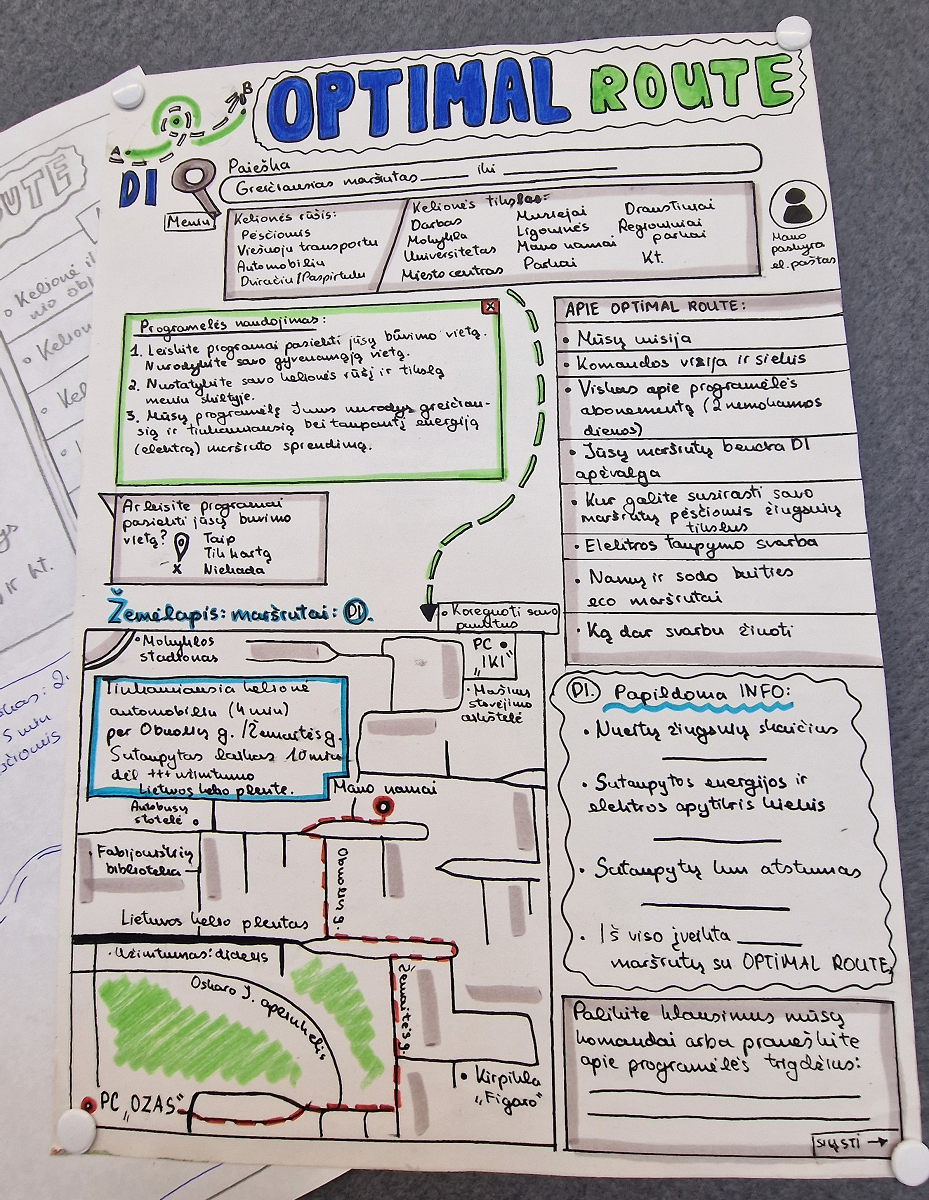 OPTIMAL ROUTE
A
B
DI
Paieška
Greičiausias maršrutas ____ iki ________
Meniu
Kelionės rūšis:
Pėsčiomis
Viešuoju transportu
Automobiliu
Dviračiu/Paspirtuku
Kelionės tikslas:
Darbas
Mokykla
Universitetas
Miesto centras
Muziejai
Ligoninės
Mano namai
Parkai
Draustiniai
Regioniniai
parkai
Kt.
Mano
paskyra
el. paštas
Programėlės naudojimas:
1. Leiskite programai pasiekti jūsų buvimo vietą.
Nurodykite savo gyvenamąją vietą.
2. Nustatykite savo kelionės rūšį ir tikslą
meniu skiltyje.
3. Mūsų programėlė Jums nurodys greičiau-
sią ir tinkamiausią bei taupantį energiją
(elektrą) maršruto sprendimą.
Ar leisite programai
pasiekti jūsų buvimo
vietą?
Taip
Tik kartą
x Niekada
APIE OPTIMAL ROUTE:
• Mūsų misija
• Komandos vizija ir siekis
• Viskas apie programėlės
abonementą (2 nemokamos
dienos)
• Jūsų maršrutų bendra DI
apžvalga
• Kur galite susirasti savo
maršrutų pėsčiomis žingsnių
tikslus
• Elektros taupymo svarba
• Namų ir sodo buities
eco maršrutai
• Ką dar svarbu žinoti
Žemėlapis: maršrutai: DI.
• Koreguoti savo
punktus
• Mokyklos
stadionas
PC
"IKI"
• Mašinų
stovėjimo
aikštelė
Tinkamiausia kelionė
automobiliu (4 min)
per Obuolių g. /Žemaitės g.
Sutaupytas laikas 10 min
dėl +++ užimtumo
Lietuvos kelio plente.
Mano namai
Autobusų
stotelė
• Fabijoniškių
biblioteka
Obuolių g.
Lietuvos kelio plentas
• Užimtumas: didelis
Oskaro J. apeinkelis
Žemaitės g.
PC „OZAS"
• Kirpykla
„Figaro"
DI. Papildoma INFO:
• Nueitų žingsnių skaičius
• Sutaupytos energijos ir
elektros apytikris kiekis
• Sutaupytų km atstumas
• Iš viso įveikta ______
maršrutų su OPTIMAL ROUTE
Palikite klausimus mūsų
komandai arba praneškite
apie programėlės trigdžius:
SIŲSTI →
UTE
• Kelionė
• Kelion
ir kt.
5 min